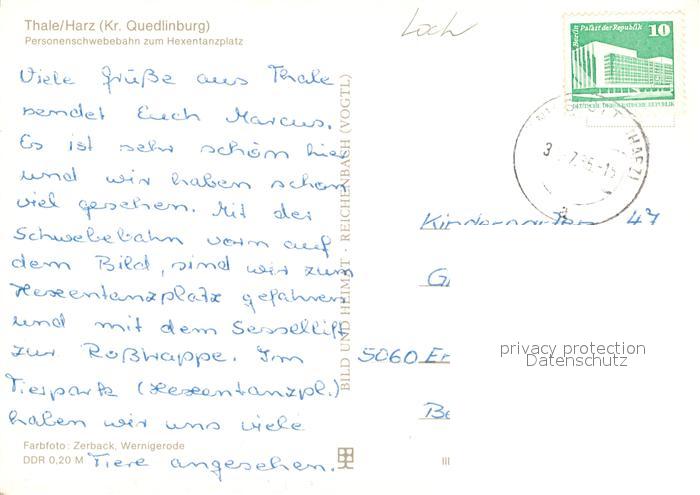 Thale/Harz (Kr. Quedlinburg)
Personenschwebebahn zum Hexentanzplatz
Loch
Berlin Palast der Republik 10
DEUTSCHE DEMOKRATISCHE REPUBLIK
(HARZ)
Viele Grüße aus Thale
sendet Euch Marcus.
Es ist sehr schön hier
und wir haben schon
viel gesehen. Mit der
Schwebebahn vorn auf
dem Bild, sind wir zum
Hexentanzplatz gefahren
und mit dem Sessellift
zur Roßtrappe. Im
Tierpark (Hexentanzpl.)
haben wir uns viele
Tiere angesehen.
BILD UND HEIMAT · REICHENBACH (VOGTL)
Kindergarten 47
5060 Er
Be
privacy protection
Datenschutz
Farbfoto: Zerback, Wernigerode
DDR 0,20 M
III